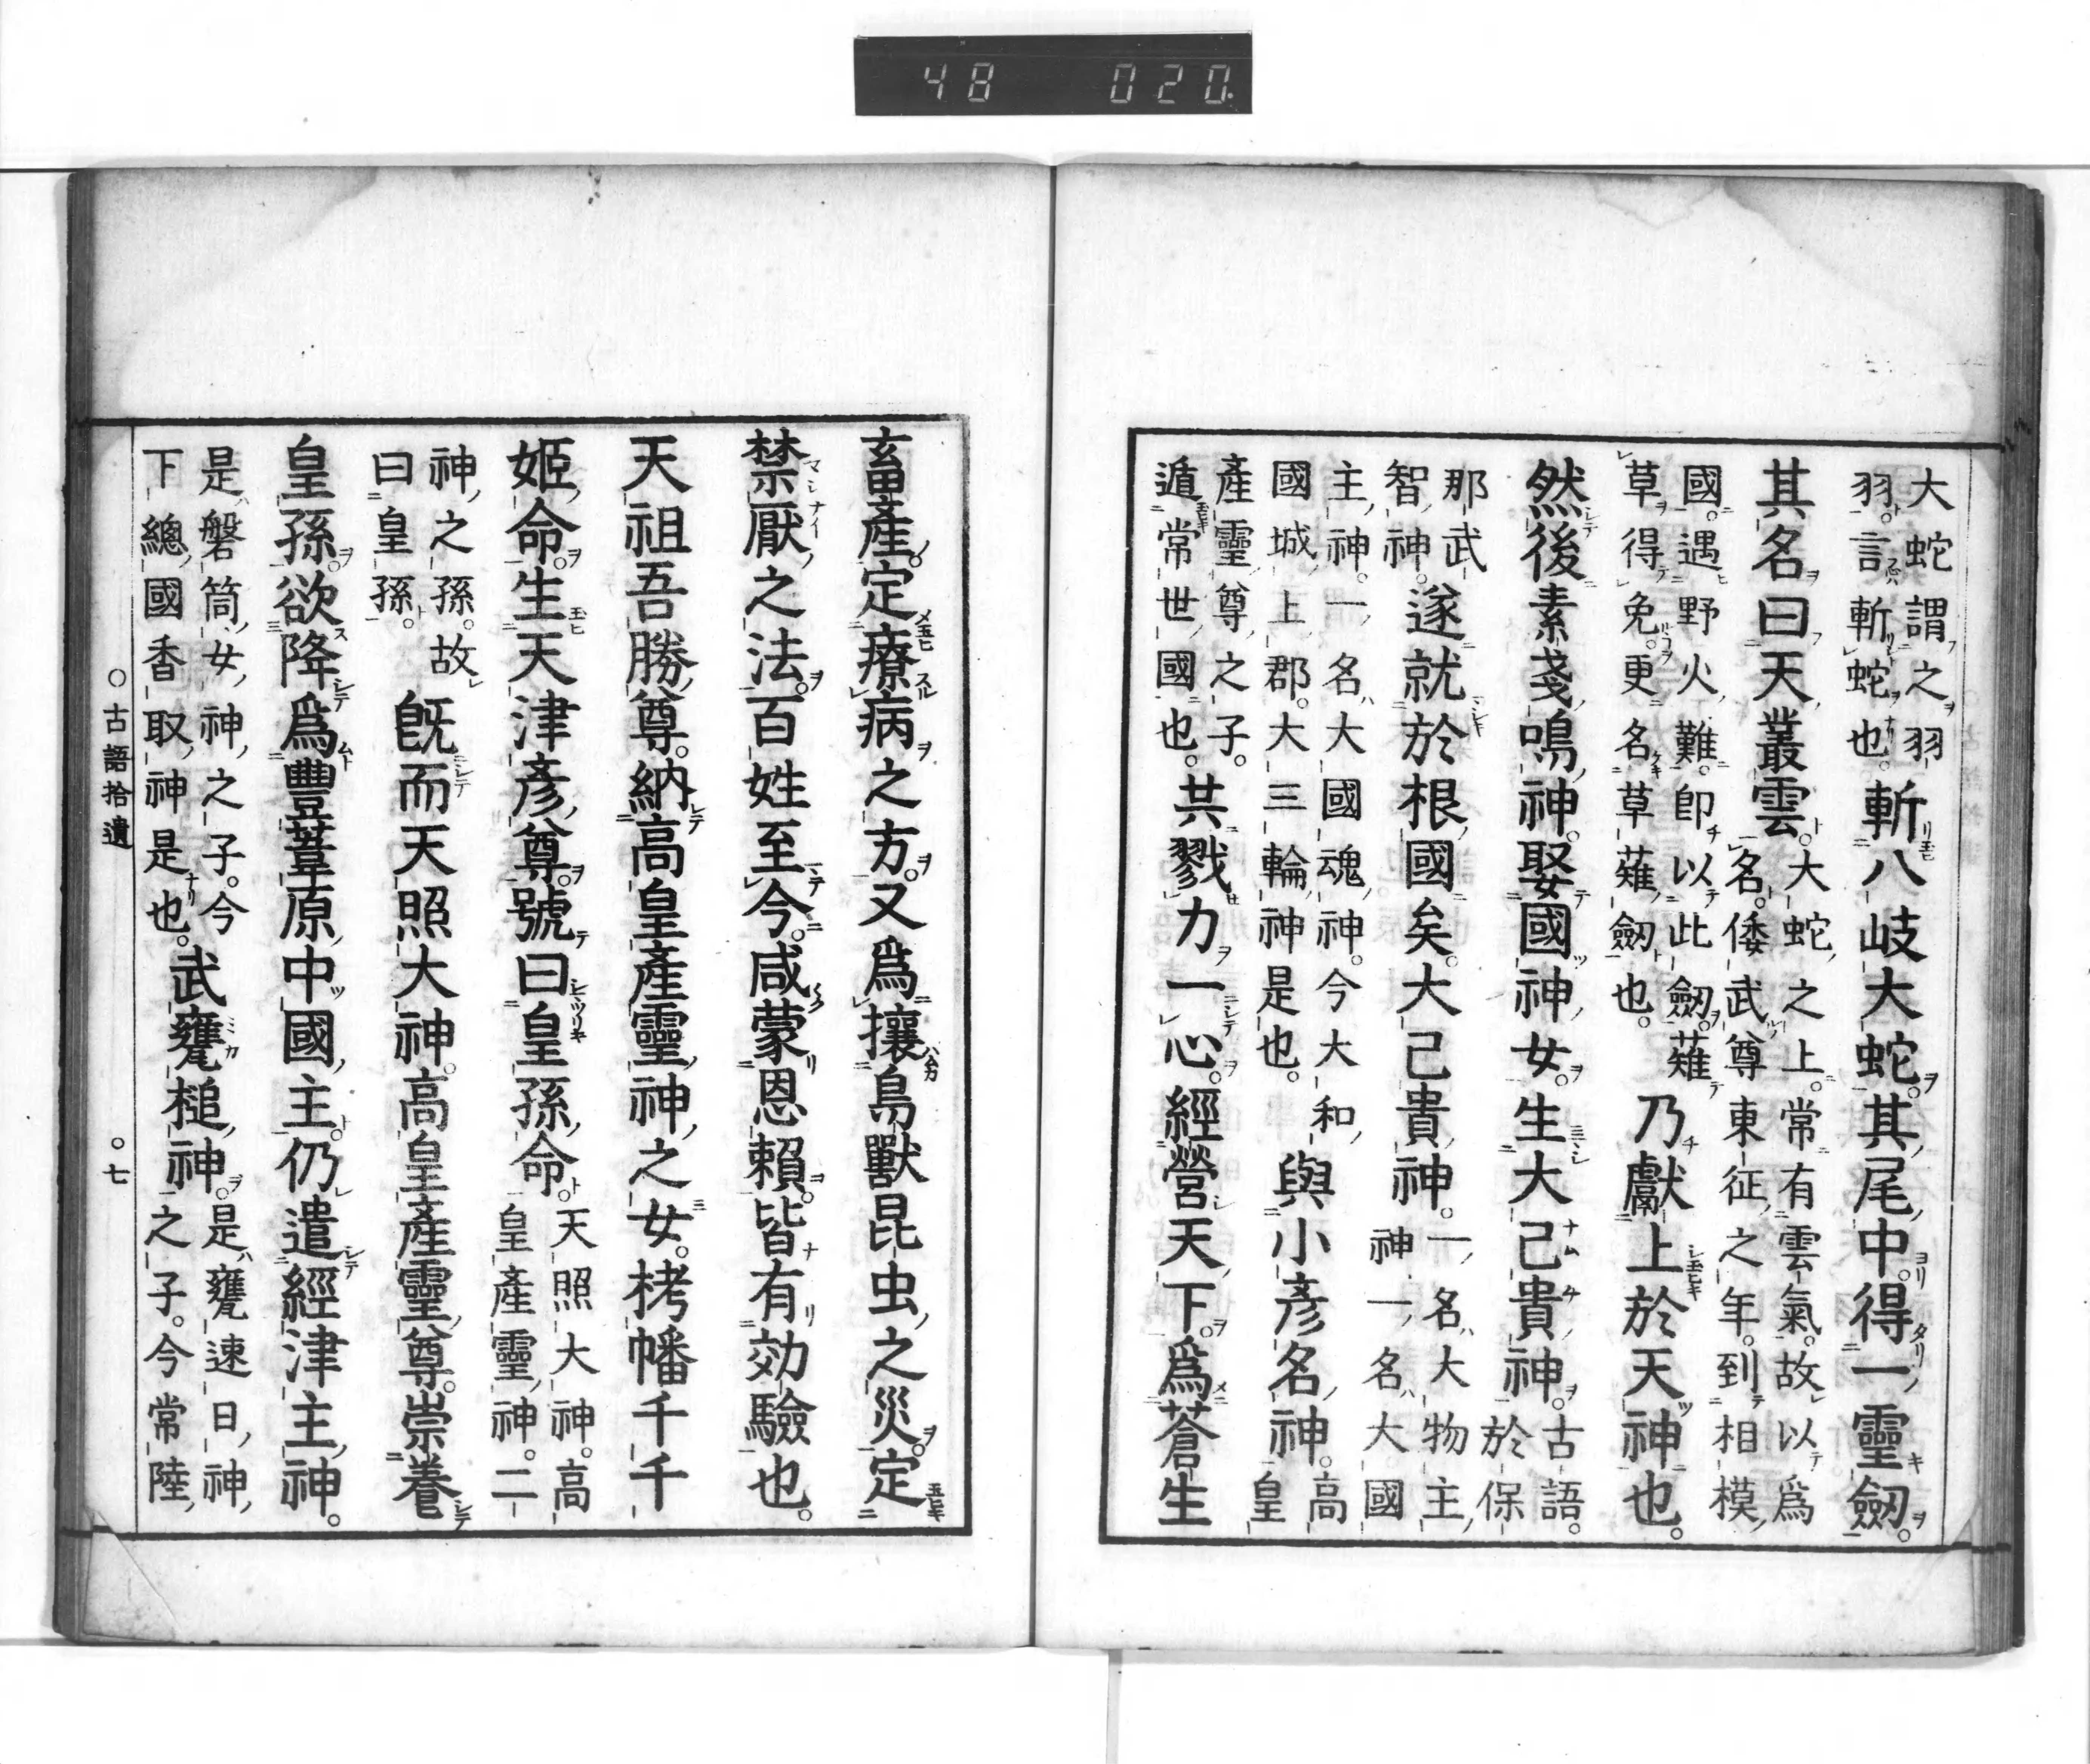 48 020
大蛇謂之羽
羽。言斬蛇也。斬八岐大蛇。其尾中。得一靈劒。
其名曰天叢雲。大蛇之上。常有雲氣。故以爲
名。倭武尊東征之年。到相模
國。遇野火難。卽以此劒。薙
草得免。更名草薙劒也。乃獻上於天神也。
然後素戔嗚神。娶國神女。生大己貴神。古語。
於保
那武
智神。遂就於根國矣。大己貴神。一名大物主
神一名大國
主神。一名大國魂神。今大和
國城上郡。大三輪神是也。與小彥名神。高
皇
產靈尊之子。
遁常世國也。共戮力一心。經營天下。爲蒼生
畜產。定療病之方。又爲攘鳥獸昆虫之災。定
禁厭之法。百姓至今。咸蒙恩賴。皆有効驗也。
天祖吾勝尊。納高皇產靈神之女。栲幡千千
姬命。生天津彥尊。號曰皇孫命。天照大神。高
皇產靈神。二
神之孫。故
曰皇孫。旣而天照大神。高皇產靈尊。崇養
皇孫。欲降爲豐葦原中國主。仍遣經津主神。
是磐筒女神之子。今
下總國香取神是也。武甕槌神。是甕速日神
之子。今常陸
○古語拾遺 ○七